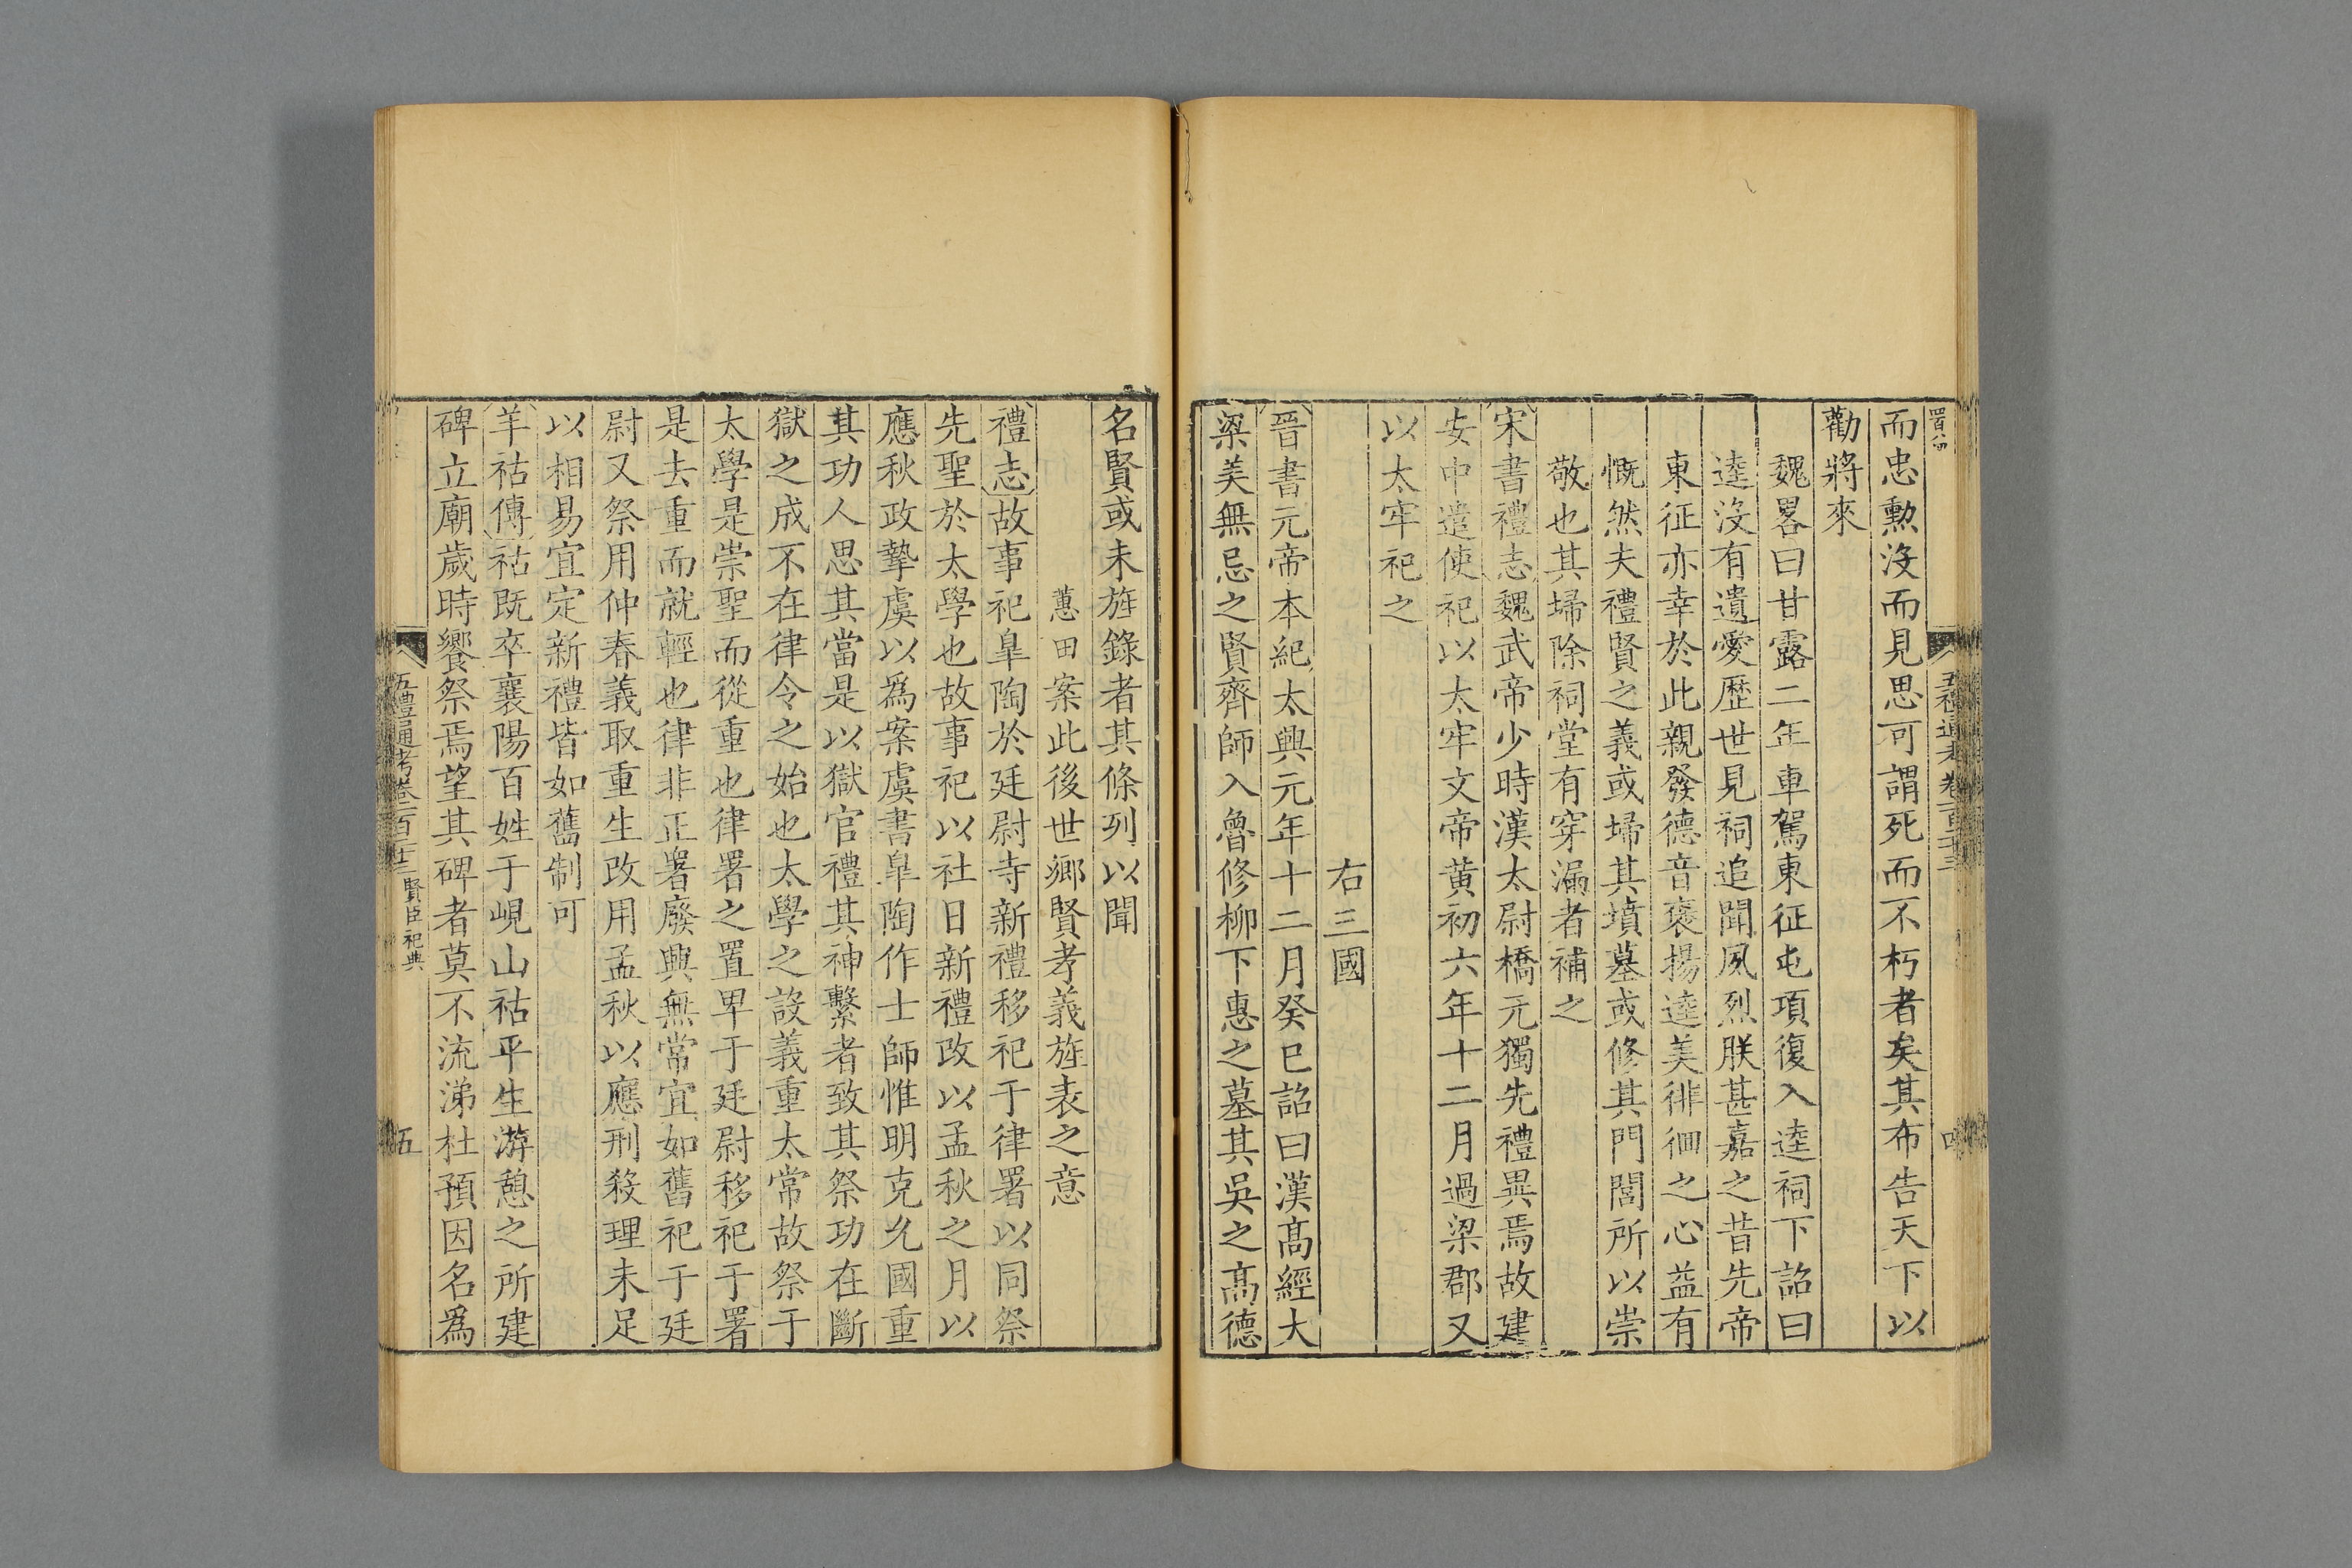 而忠勲没而見思可謂死而不朽者矣其布告天下以
勸將來
魏畧曰甘露二年車駕東征屯項復入逵祠下詔曰
逵没有遺愛歷世見祠追聞風烈朕甚嘉之昔先帝
東征亦幸於此親發德音褒揚逵美徘徊之心益有
慨然夫禮賢之義或埽其墳墓或修其門閭所以崇
敬也其埽除祠堂有穿漏者補之
宋書禮志魏武帝少時漢太尉橋元獨先禮異焉故建
安中遣使祀以太牢文帝黃初六年十二月過梁郡又
以太牢祀之
右三國
晉書元帝本紀太興元年十二月癸巳詔曰漢高經大
梁美無忌之賢齊師入魯修柳下惠之墓其吳之高德
名賢或未旌錄者其條列以聞
蕙田案此後世鄉賢孝義旌表之意
禮志故事祀臯陶於廷尉寺新禮移祀于律署以同祭
先聖於太學也故事祀以社日新禮改以孟秋之月以
應秋政摯虞以爲案虞書臯陶作士師惟明克允國重
其功人思其當是以獄官禮其神繫者致其祭功在斷
獄之成不在律令之始也太學之設義重太常故祭于
太學是崇聖而從重也律署之置卑于廷尉移祀于署
是去重而就輕也律非正署廢興無常宜如舊祀于廷
尉又祭用仲春義取重生改用孟秋以應刑殺理未足
以相易宜定新禮皆如舊制可
羊祜傳祜既卒襄陽百姓于峴山祜平生游憩之所建
碑立廟歲時饗祭焉望其碑者莫不流涕杜預因名爲
五禮通考卷二百廿三 賢臣祀典
五